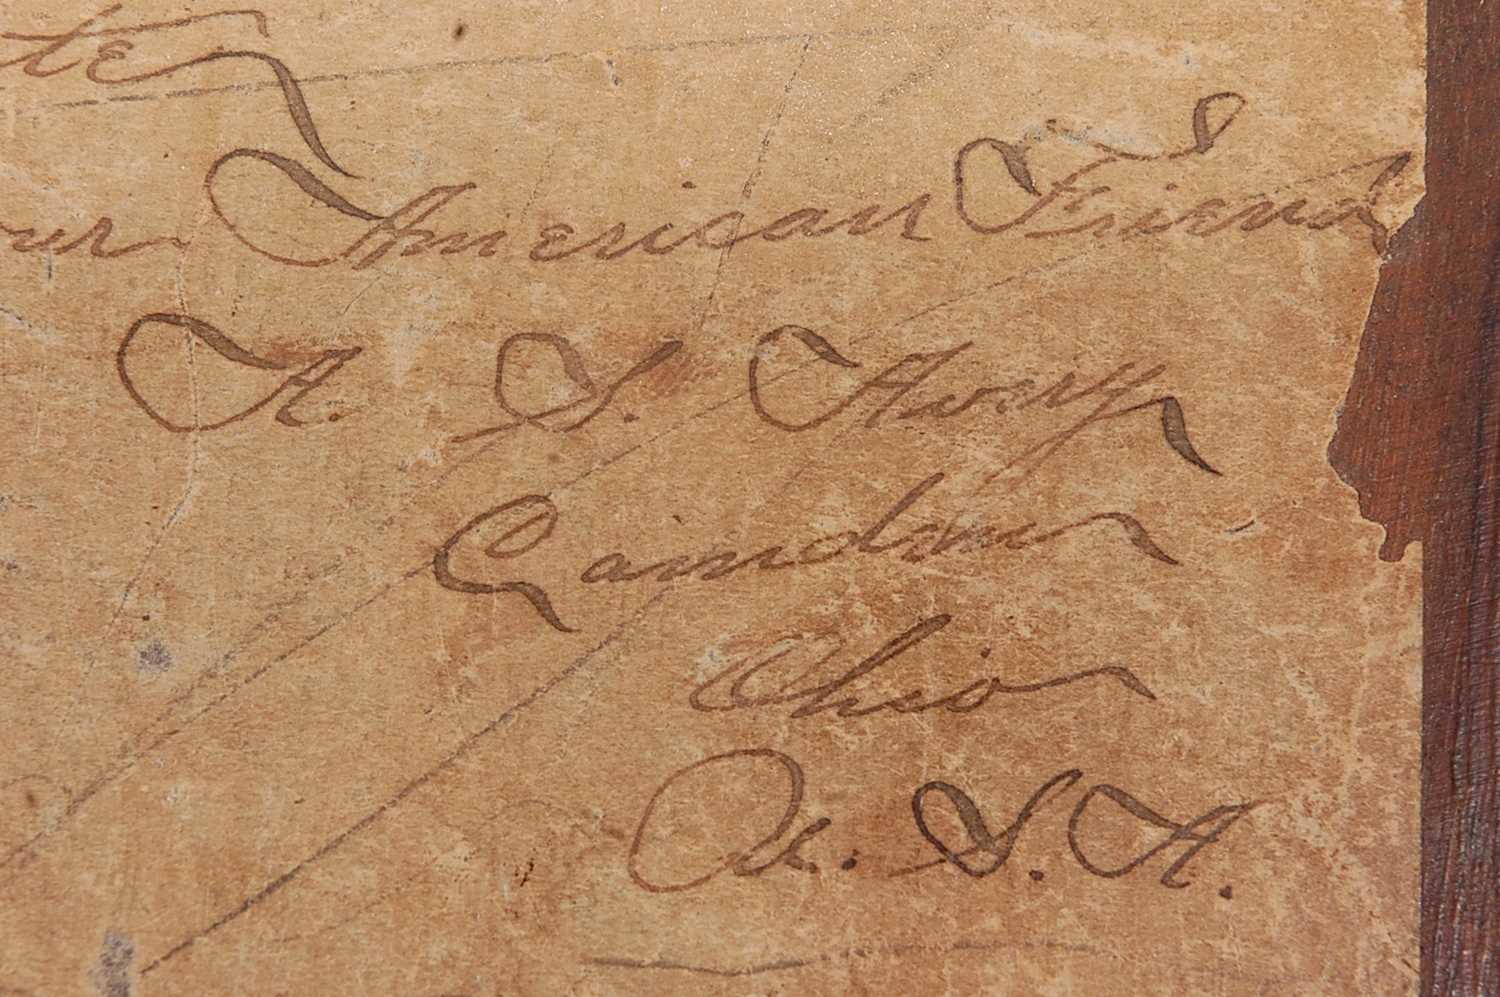 te
ur American Friend
A. S. Avery
Camden
Ohio
U. S. A.